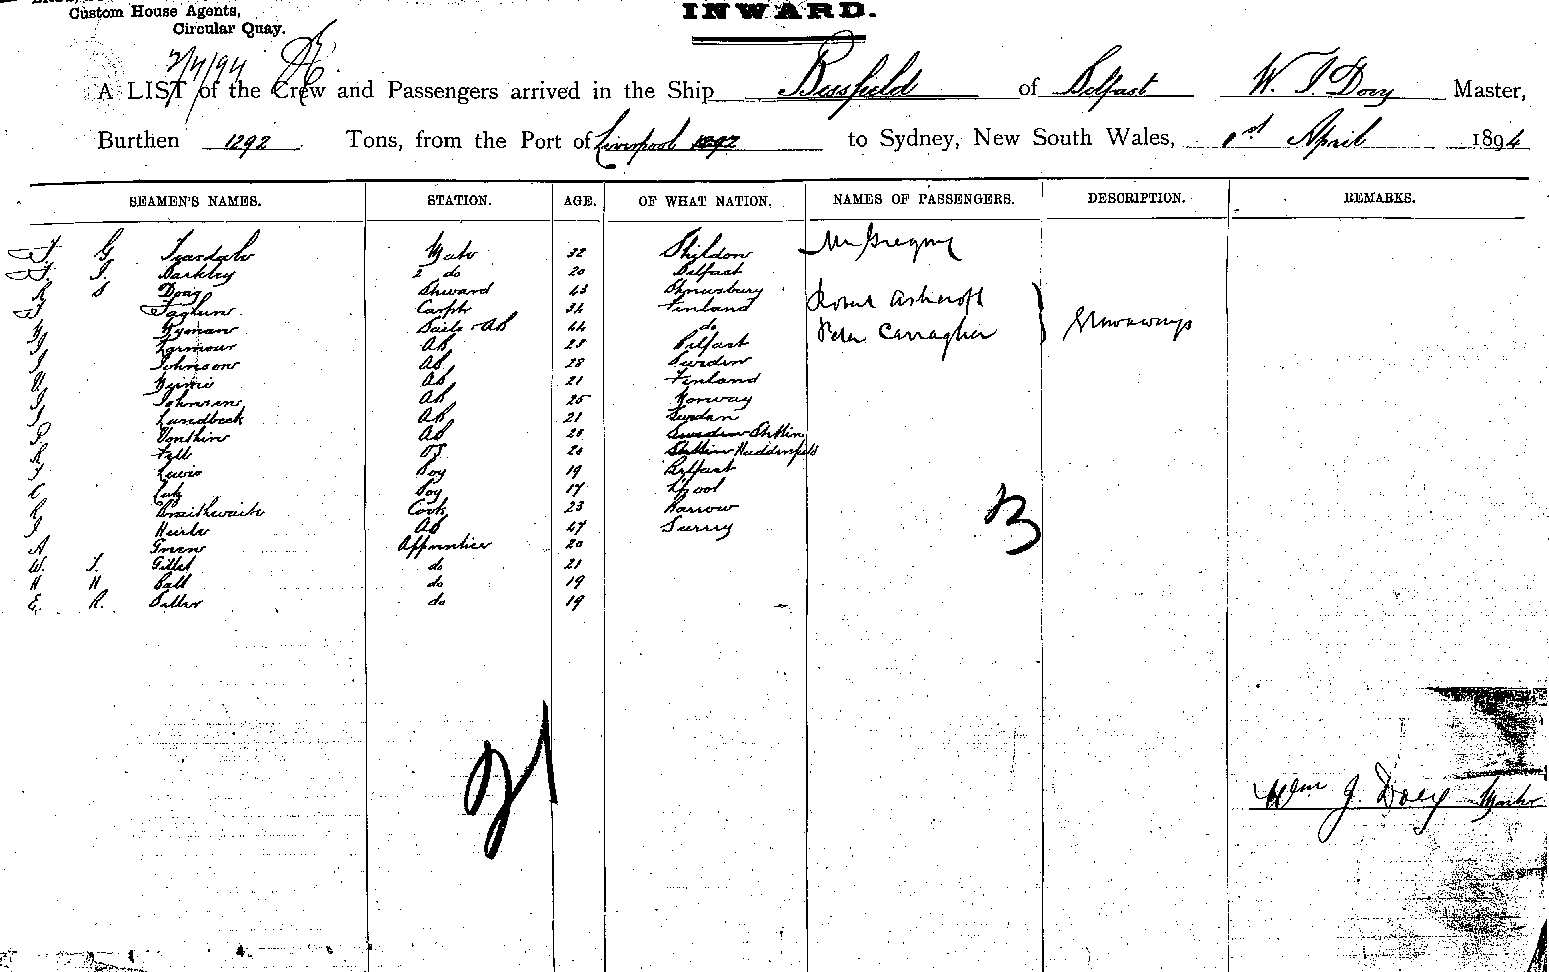 Custom House Agents,
Circular Quay.
INWARD.
2/4/94
A LIST of the Crew and Passengers arrived in the Ship of Belfast W. J. Doey Master,
Burthen 1292 Tons, from the Port of Liverpool 1292 to Sydney, New South Wales, 1st April 1894
SEAMEN'S NAMES. STATION. AGE. OF WHAT NATION. NAMES OF PASSENGERS. DESCRIPTION. REMARKS.
G Mate 32 Shildon Mr Gregory
Barkley 2 do 20 Belfast
R S Doag Steward 43 Shrewsbury Robert Ashcroft
Carptr 34 Finland
Nyman Sailr AB 44 do Peter Carragher Stowaways
Larmour AB 23 Belfast
J Johnson AB 28 Sweden
AB 21 Finland
J Johnsen AB 25 Norway
J Lundbeck AB 21 Sweden
AB 20 Sweden Stettin
R Fell OS 20 Stettin Huddersfield
Lewis Boy 19 Belfast
C Boy 17 L'pool
R Braithwaite Cook 23 Barrow
J AB 47 Surrey
A Green Apprentice 20
W. J. Gillet do 21
H H Ball do 19
E. R. do 19
B
21
Wm J. Doey Master